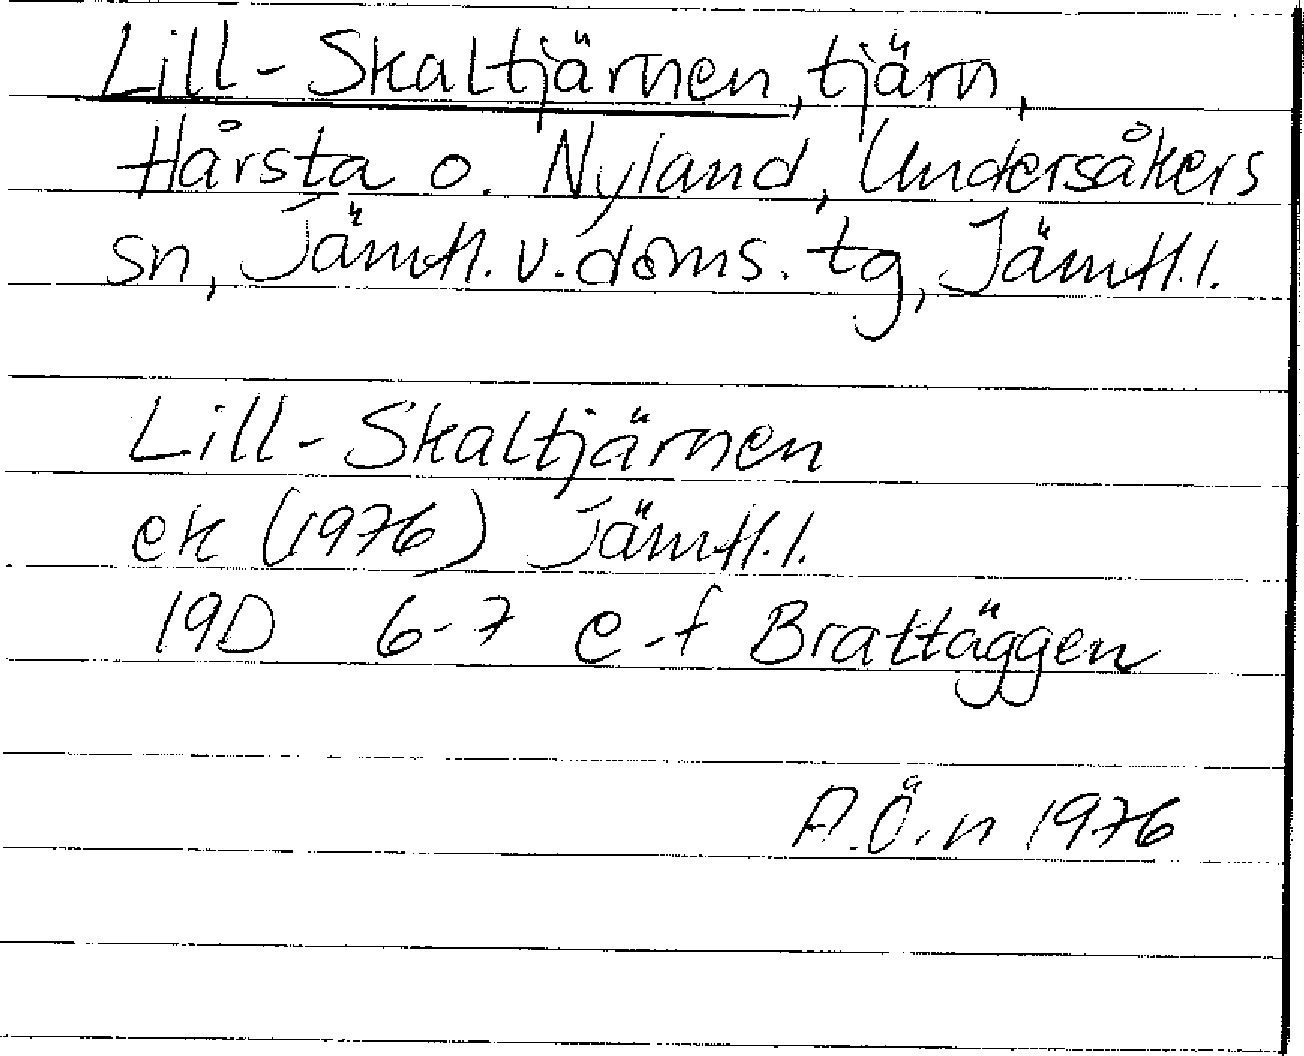 Lill-Skaltjärnen, tjärn,
Hårsta o. Nyland, Undersåkers
sn, Jämtl. v. doms. tg, Jämtl.l.
Lill-Skaltjärnen
ek (1976) Jämtl.l.
19D 6-7 e-f Brattäggen
A.Ö.n 1976